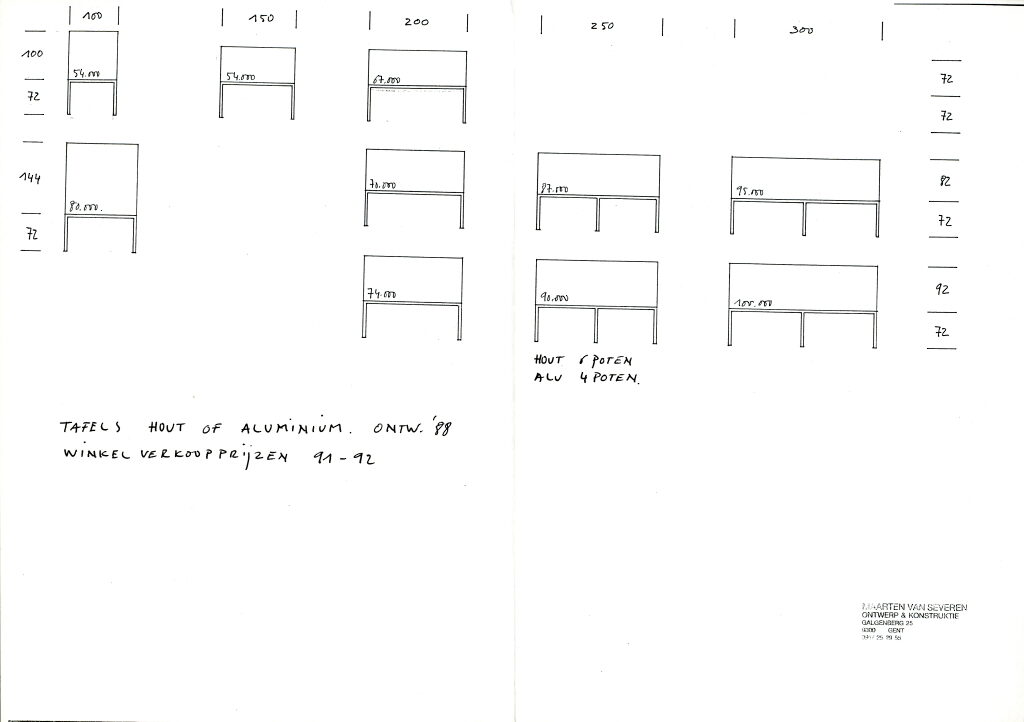 100 150 200 250 300
100 54.000 54.000 67.000 72
72 72
144 80.000. 70.000 87.000 95.000 82
72 72
74.000 90.000 100.000 92
72
HOUT 6 POTEN
ALU 4 POTEN.
TAFELS HOUT OF ALUMINIUM. ONTW. '88
WINKEL VERKOOPPRIJZEN 91-92
MAARTEN VAN SEVEREN
ONTWERP & KONSTRUKTIE
GALGENBERG 25
GENT